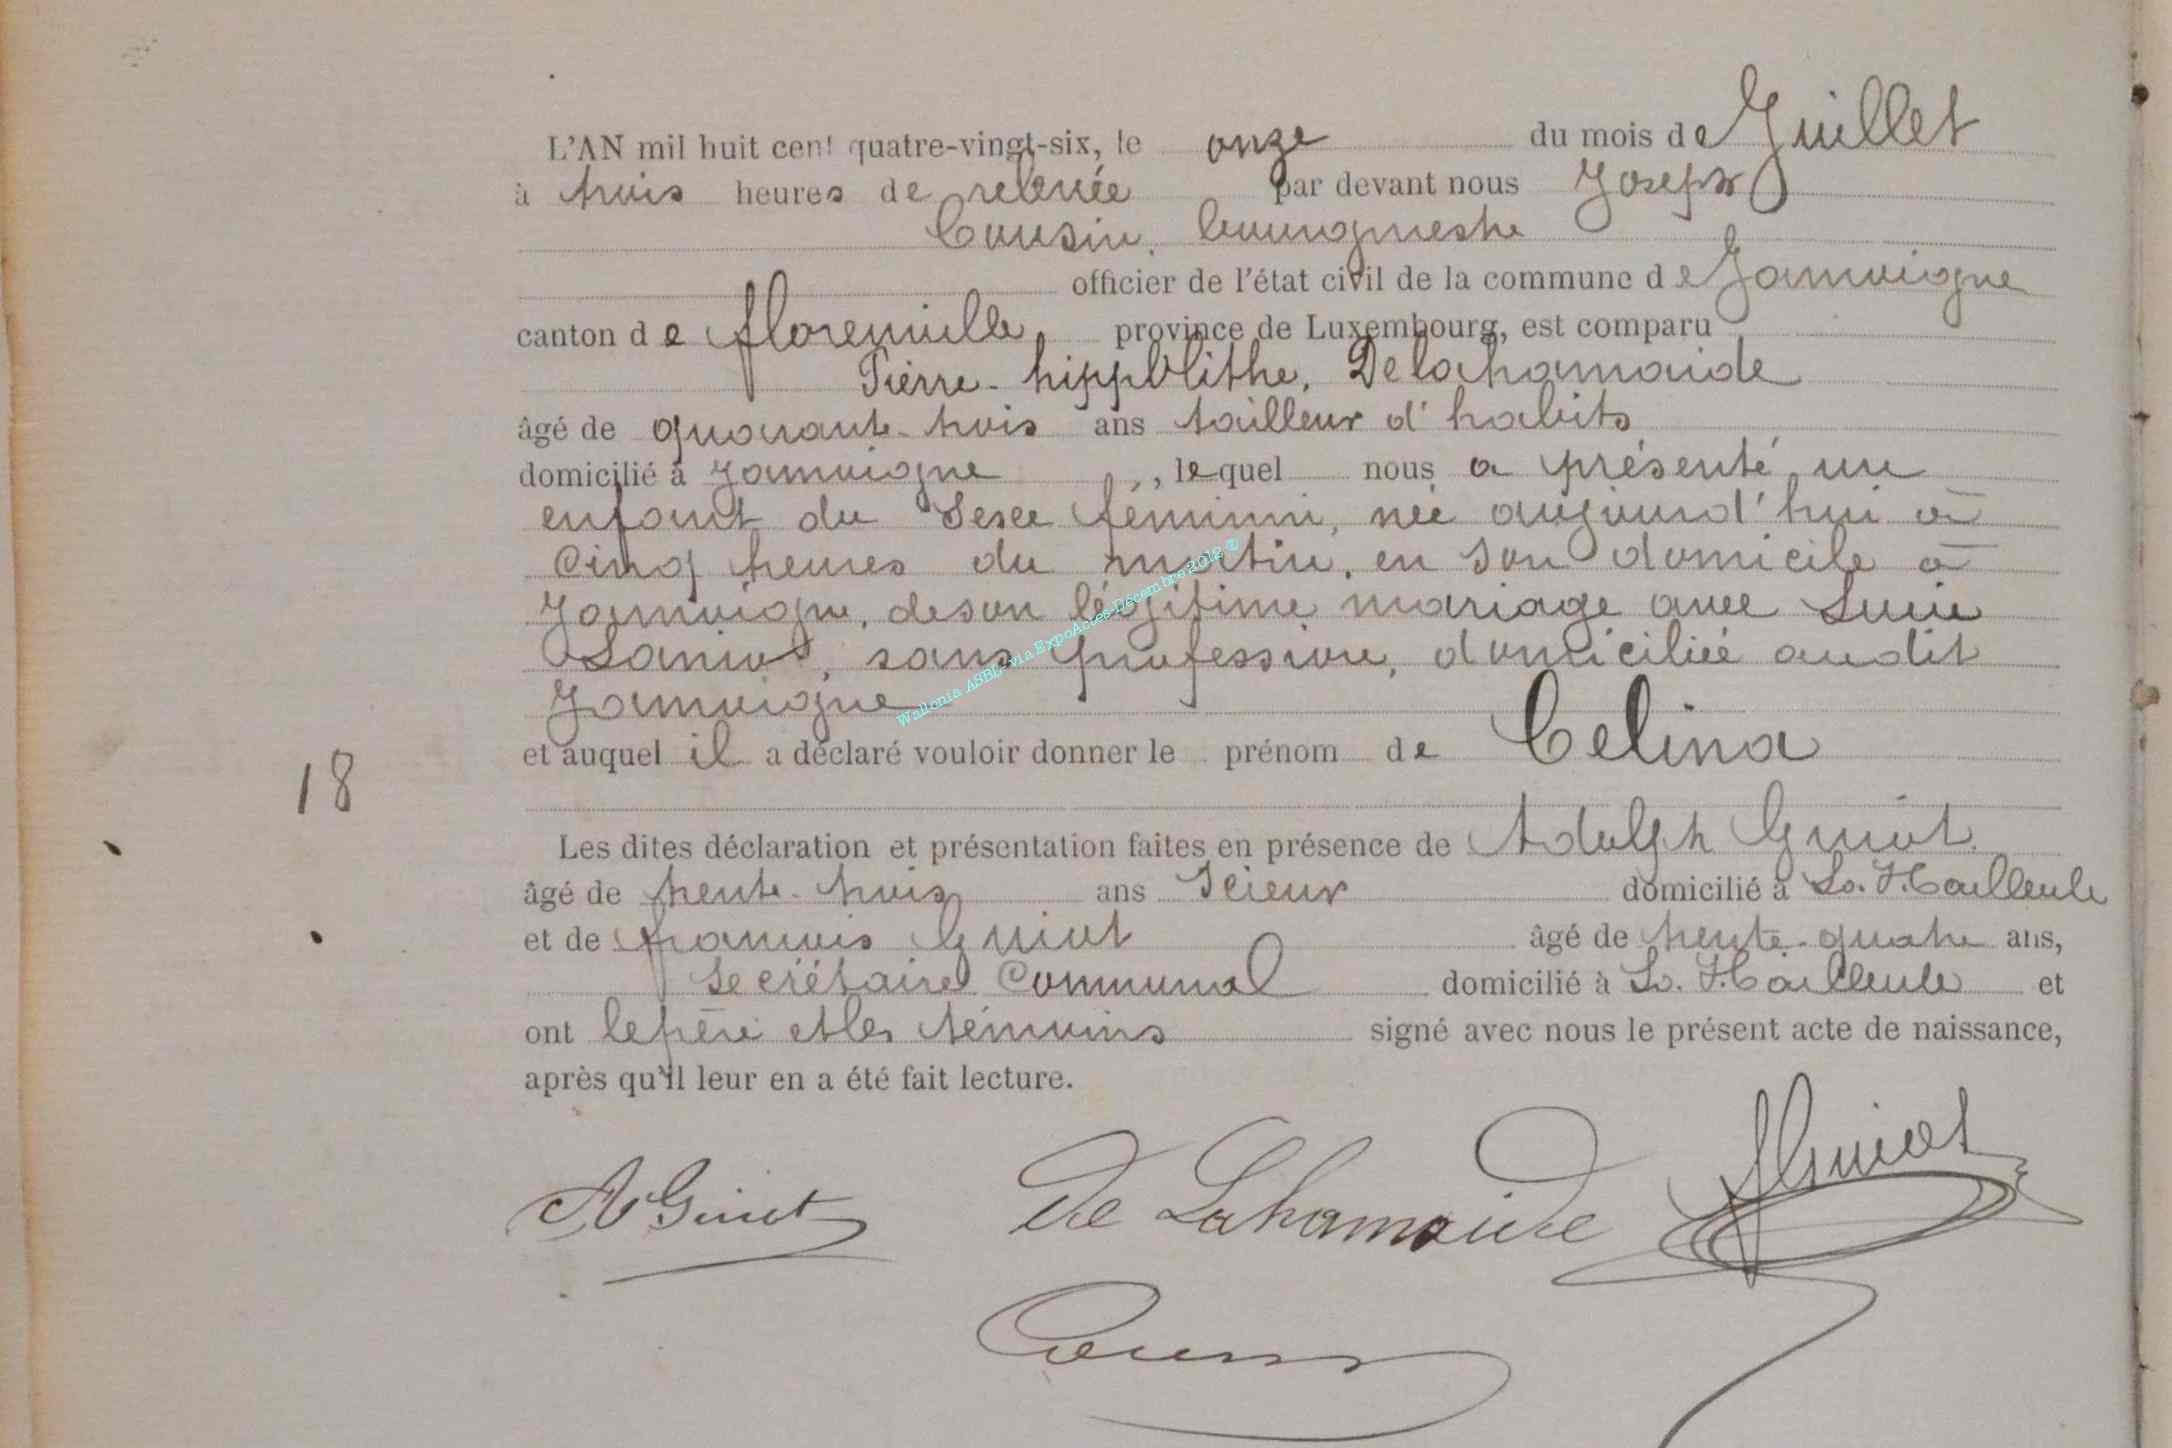 L'AN mil huit cent quatre-vingt-six, le onze du mois de Juillet
à trois heures de relevée par devant nous Joseph
Cousin, bourgmestre
officier de l'état civil de la commune de Jamoigne
canton de florenville province de Luxembourg, est comparu
Pierre-hippolithe, Delahamaide
âgé de quarante-trois ans tailleur d'habits
domicilié à Jamoigne, lequel nous a présenté un
enfant du sexe féminin, née aujourd'hui à
Cinq heures du matin, en son domicile à
Jamoigne, de son légitime mariage avec
sans profession, domiciliée audit
Jamoigne
et auquel il a déclaré vouloir donner le prénom de Celina
18
Les dites déclaration et présentation faites en présence de Adolph Guiot
âgé de trente-trois ans Scieur domicilié à
et de francois Guiot âgé de trente-quatre ans,
secrétaire Communal domicilié à et
ont le père et les témoins signé avec nous le présent acte de naissance,
après qu'il leur en a été fait lecture.
A Guiot De Lahamaide f Guiot
Cousin
Wallonia ASBL via ExpoActes-Décembre 2012 ©